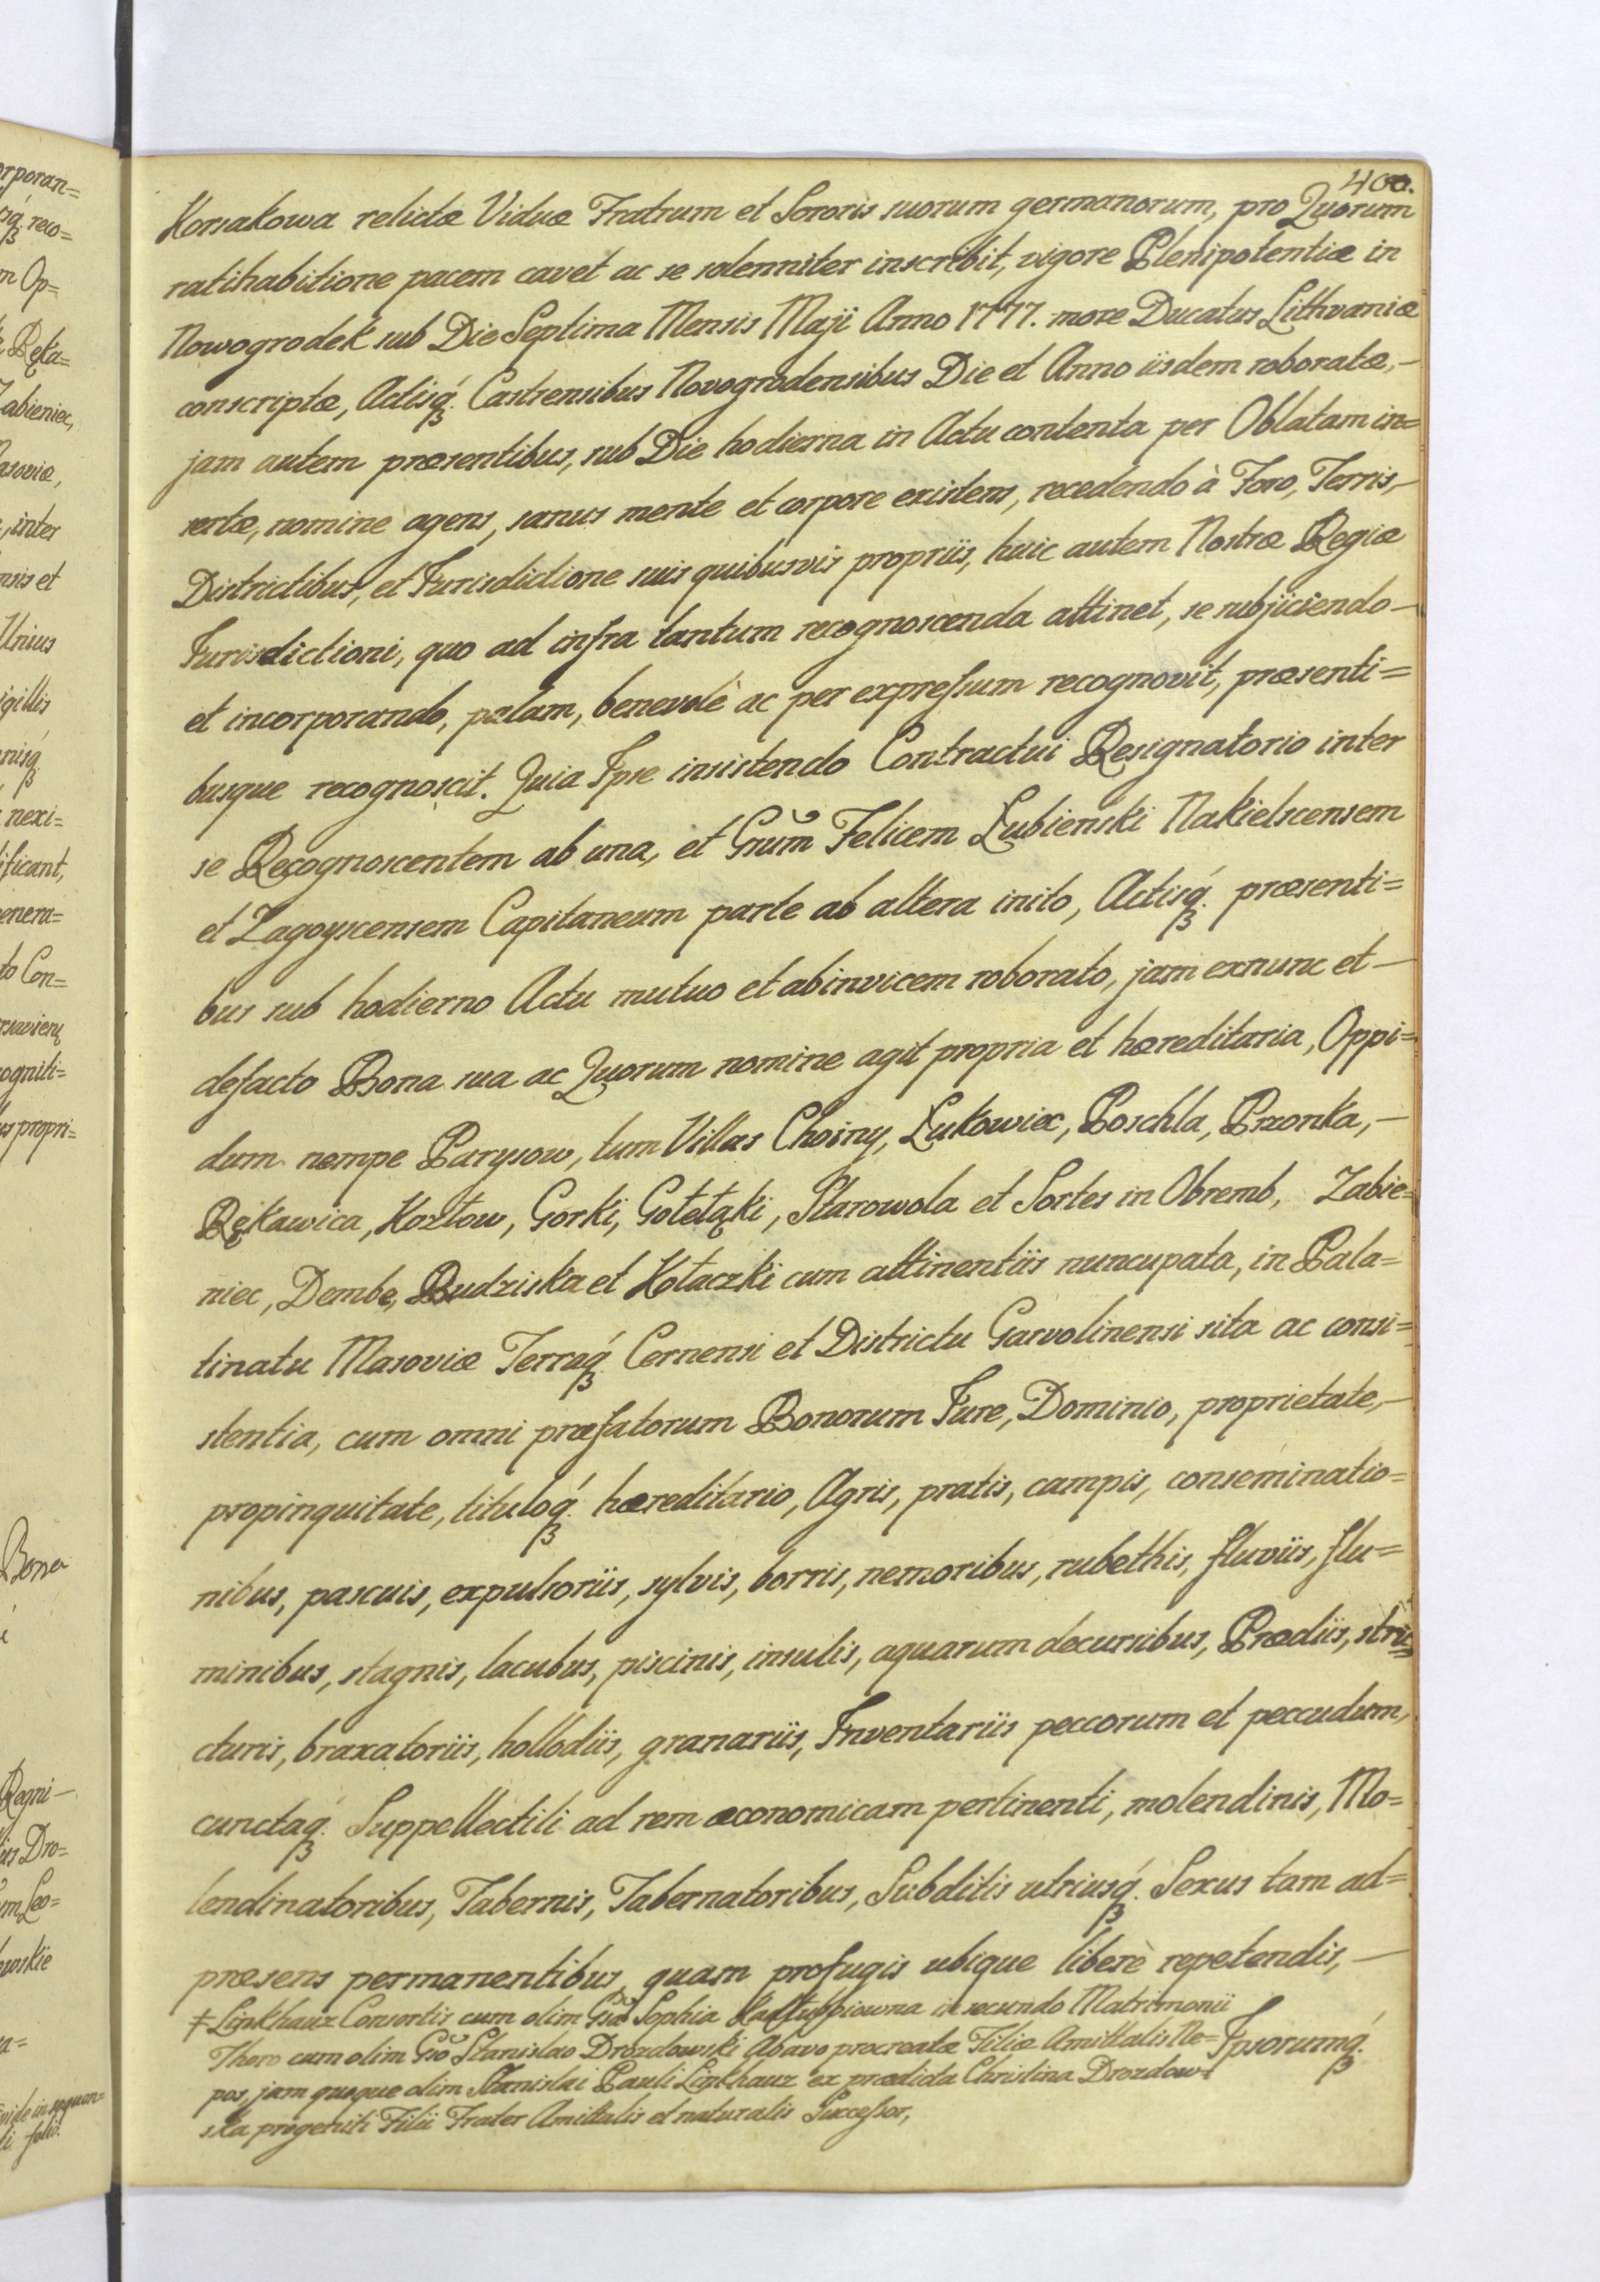 400.
Korsakowa relictæ Viduæ Fratrum et Sororis suorum germanorum, pro Quorum
ratihabitione pacem cavet ac se solenniter inscribit, vigore Plenipotentiæ in
Nowogrodek sub Die Septima Mensis Maji Anno 1777. more Ducatus Lithvaniæ
conscriptæ, Actisq́ꝫ. Castrensibus Novogrodensibus Die et Anno iisdem roboratæ,—
jam autem præsentibus, sub Die hodierna in Actu contenta per Oblatam in=
sertæ, nomine agens, sanus mente et corpore existens, recedendo à Foro, Terris,—
Districtibus, et Jurisdictione suis quibusvis propriis, huic autem Nostræ Regiæ
Jurisdictioni, quo ad infra tantum recognoscenda attinet, se subjiciendo—
et incorporando, palam, benevolè ac per expressum recognovit, præsenti=
busque recognoscit. Quia Ipse insistendo Contractui Resignatorio inter
se Recognoscentem ab una, et Grum Felicem Łubienski Nakielscensem
et Zagoyscensem Capitaneum parte ab altera inito, Actisq́ꝫ. præsenti=
bus sub hodierno Actu mutuo et abinvicem roborato, jam exnunc et—
defacto Bona sua ac Quorum nomine agit propria et hæreditaria, Oppi=
dum nempe Parysow, tum Villas Choiny, Łukowiec, Poschla, Przonka,—
Rękawica, Kozłow, Gorki, Gołełąki, Starowola et Sortes in Obremb, Zabie=
niec, Dembe, Budziska et Kołaczki cum attinentiis nuncupata, in Pala=
tinatu Masoviæ Terraq́ꝫ. Cernensi et Districtu Garvolinensi sita ac consi=
stentia, cum omni præfatorum Bonorum Jure, Dominio, proprietate,—
propinquitate, tituloq́ꝫ. hæreditario, Agris, pratis, campis, conseminatio=
nibus, pascuis, expulsoriis, sylvis, borris, nemoribus, rubethis, fluviis, flu=
minibus, stagnis, lacubus, piscinis, insulis, aquarum decursibus, Prædiis, stru=
cturis, braxatoriis, hollodiis, granariis, Inventariis peccorum et peccudum,
cunctaq́ꝫ. Suppellectili ad rem œconomicam pertinenti, molendinis, Mo=
lendinatoribus, Tabernis, Tabernatoribus, Subditis utriusq́ꝫ. Sexus tam ad=
præsens permanentibus, quam profugis ubique liberè repetendis,—
Ipsorumq́ꝫ.
‡ Linkhauz Consortis cum olim Gsa Sophia in secundo Matrimonii
Thoro cum olim Gso Stanislao Drozdowski Abavo procreatæ Filiæ Amittalis Ne=
pos, jam quoque olim Stanislai Pauli Linkhauz ex prædicta Christina Drozdow
ska progeniti Filii Frater Amittalis et naturalis Successor,